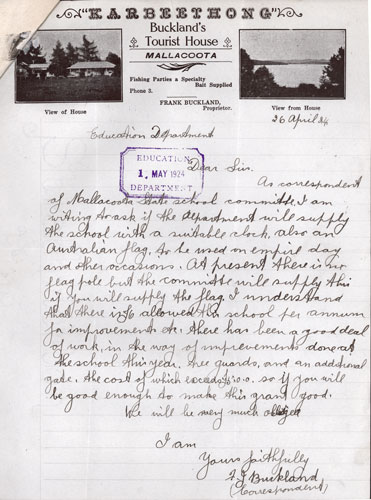 "KARBEETHONG"
Buckland's
Tourist House
MALLACOOTA
Fishing Parties a Specialty
Bait Supplied
Phone 5.
FRANK BUCKLAND,
Proprietor.
View of House
View from House
26 April 24
Education Department
EDUCATION
1. MAY 1924
DEPARTMENT
Dear Sir.
As correspondent
of Mallacoota State school committee, I am
writing to ask if the department will supply
the school with a suitable clock, also an
Australian flag, to be used on empire day
and other occasions. At present there is no
flag pole but the committee will supply this
if you will supply the flag. I understand
that there is allowed this school per annum
for improvements etc. there has been a good deal
of work, in the way of improvements done at
the school this year, tree guards, and an additional
gate. the cost of which exceeds so if you will
be good enough to make this grant good.
We will be very much obliged
I am
Yours faithfully
F. J. Buckland
(Correspondent)